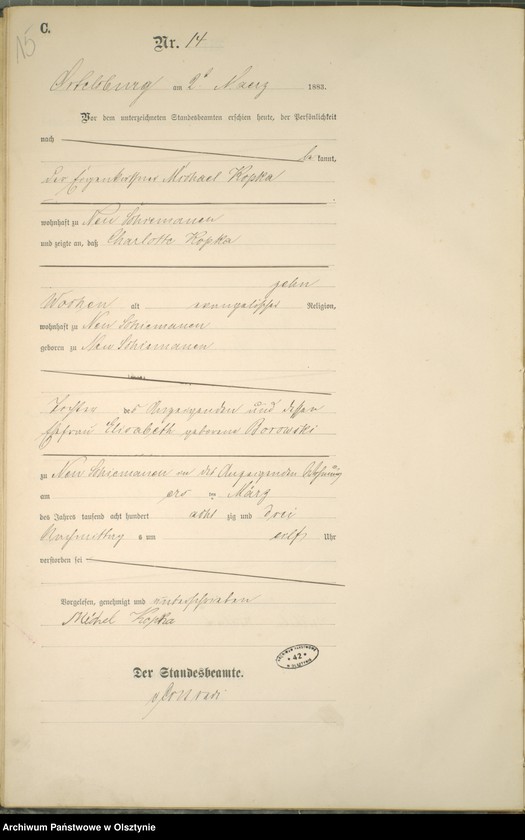 C.
15
Nr. 14
Ortelsburg am 2t Maerz 1883.
Vor dem unterzeichneten Standesbeamten erschien heute, der Persönlichkeit
nach
be kannt,
der Eigenkäthner Michael Kopka
wohnhaft zu Neu Schiemanen
und zeigte an, daß Charlotte Kopka
zehn
Wochen alt evangelischer Religion,
wohnhaft zu Neu Schiemanen
geboren zu Neu Schiemanen
Tochter des Anzeigenden und dessen
Ehefrau Elisabeth geborene Borowski
zu Neu Schiemanen in des Anzeigenden Wohnung
am ers ten März
des Jahres tausend acht hundert acht zig und drei
Nachmittag s um elf Uhr
verstorben sei
Vorgelesen, genehmigt und unterschrieben
Michel Kopka
Der Standesbeamte.
ARCHIWUM PAŃSTWOWE
* 42 *
W OLSZTYNIE
Archiwum Państwowe w Olsztynie